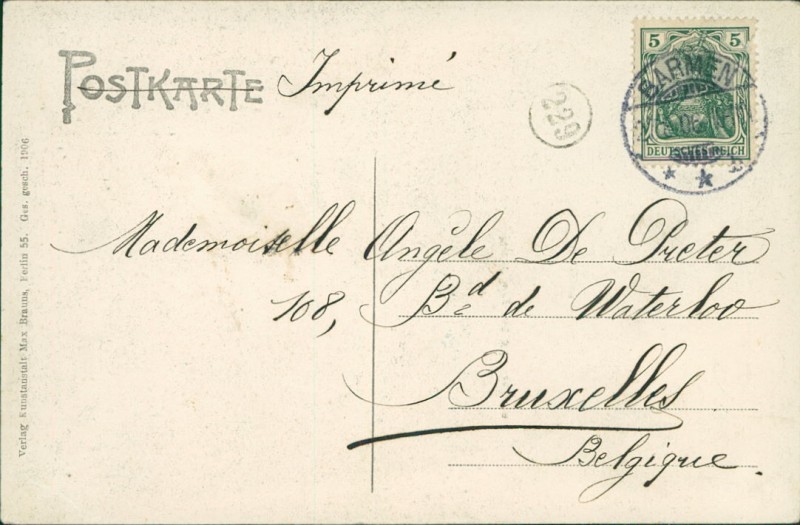 POSTKARTE Imprimé
229
5 5
BARMEN
DEUTSCHES REICH
Mademoiselle Angèle De Preter
108, Bd de Waterloo
Bruxelles
Belgique.
Verlag Kunstanstalt Max Brauns, Berlin 55. Ges. gesch. 1906